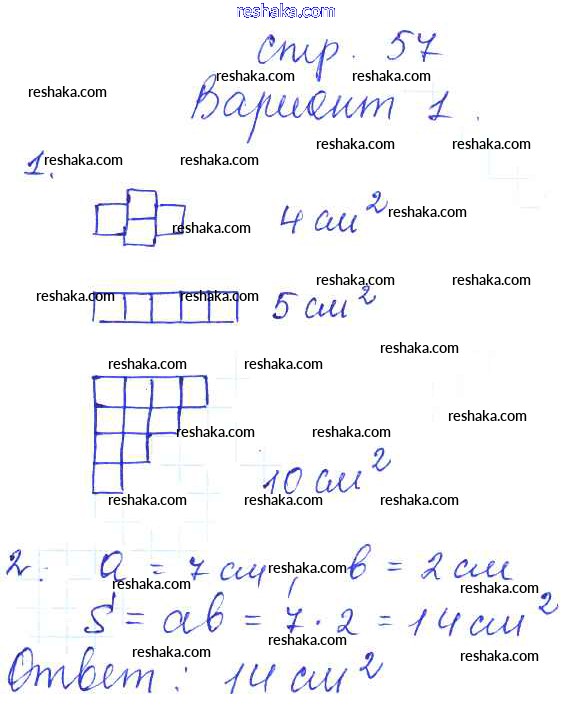 reshaka.com
стр. 57
reshaka.com reshaka.com
reshaka.com
Вариант 1.
reshaka.com reshaka.com
1. reshaka.com reshaka.com
4 см² reshaka.com
reshaka.com
reshaka.com reshaka.com
reshaka.com reshaka.com 5 см²
reshaka.com
reshaka.com reshaka.com
reshaka.com
reshaka.com reshaka.com
10 см²
reshaka.com reshaka.com reshaka.com
2. a = 7 см, b = 2 см
reshaka.com reshaka.com
reshaka.com reshaka.com
S = ab = 7 · 2 = 14 см²
reshaka.com reshaka.com
reshaka.com reshaka.com
Ответ: 14 см²
reshaka.com reshaka.com